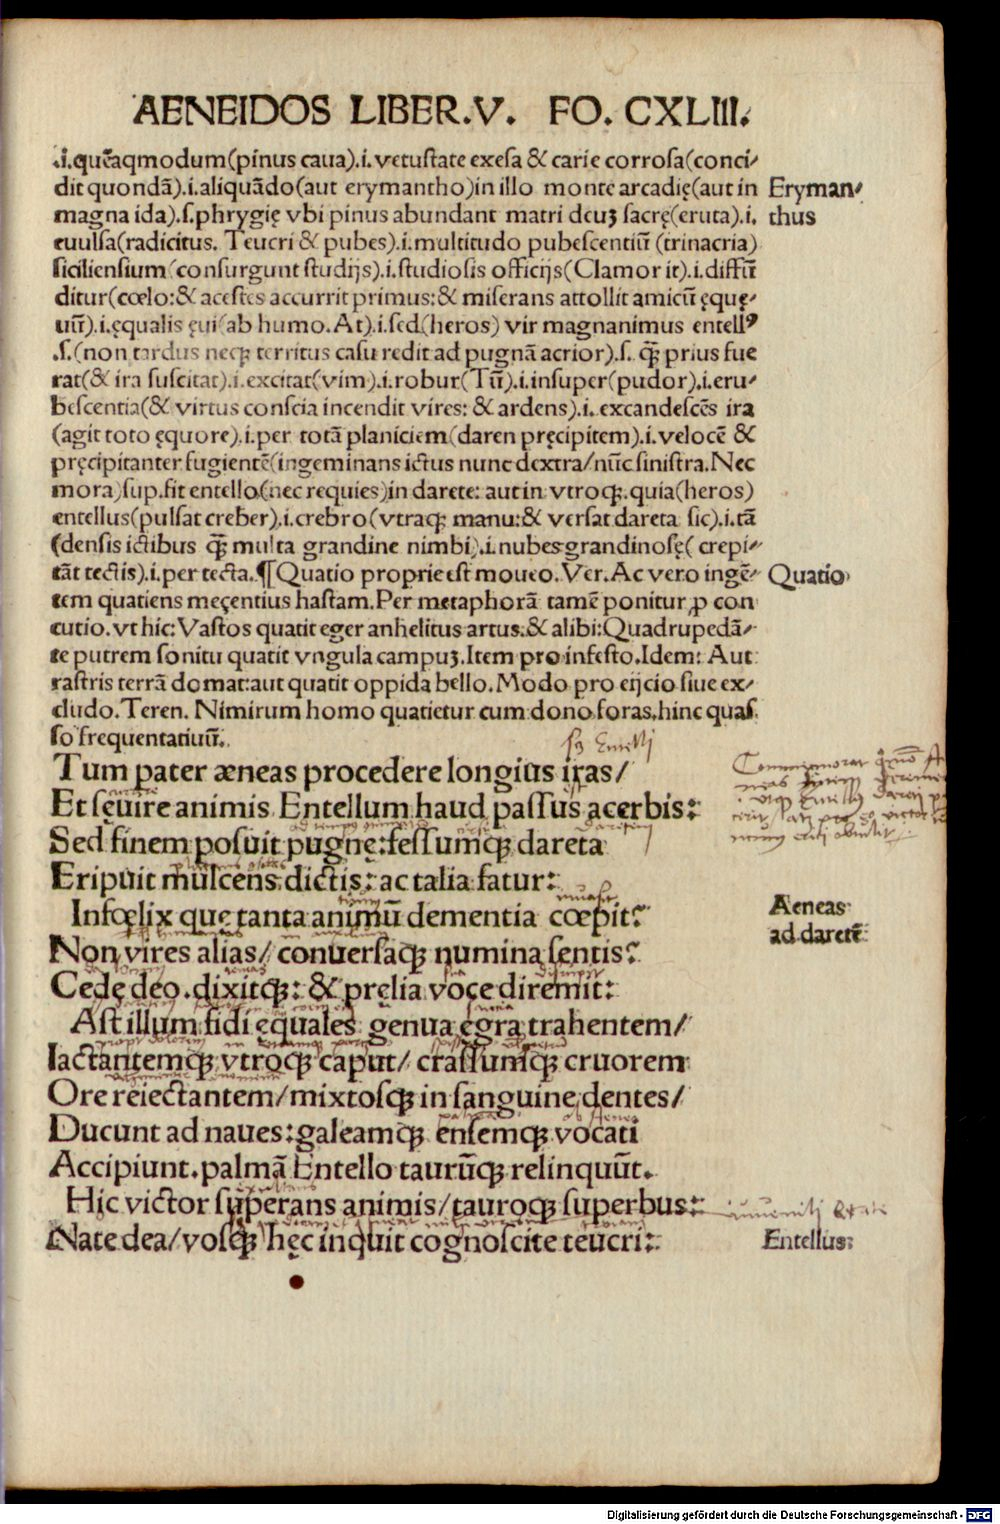 AENEIDOS LIBER.V. FO. CXLIII.
.i.quēaqmodum(pinus caua).i.vetustate exesa & carie corrosa(conci/
dit quondā).i.aliquādo(aut erymantho)in illo monte arcadię(aut in
Eryman/
magna ida).s.phrygię vbi pinus abundant matri deuꝫ sacrę(eruta).i.
thus
euulsa(radicitus. Teucri & pubes).i.multitudo pubescentiū (trinacria)
siciliensium(consurgunt studijs).i.studiosis officijs(Clamor it).i.diffū
ditur(cœlo:& acestes accurrit primus:& miserans attollit amicū ęquę/
uū).i.ęqualis ęui(ab humo. At).i.sed(heros) vir magnanimus entellꝰ
.s.(non tardus neqꝫ territus casu redit ad pugnā acrior).s. qꝫ̄ prius fue
rat(& ira suscitat).i.excitat(vim).i.robur(Tū).i.insuper(pudor).i.eru/
bescentia(& virtus conscia incendit vires: & ardens).i. excandescēs ira
(agit toto ęquore).i.per totā planiciem(daren pręcipitem).i.velocē &
pręcipitanter fugientē(ingeminans ictus nunc dextra/nūc sinistra.Nec
mora)sup.fit entello(nec requies)in darete: aut in vtroqꝫ.quia(heros)
entellus(pulsat creber).i.crebro(vtraqꝫ manu:& versat dareta sic).i.tā
(densis ictibus qꝫ̄ multa grandine nimbi).i.nubes grandinosę( crepi/
tāt tectis).i.per tecta.¶Quatio proprie est moueo.Ver.Ac vero ingē/
Quatio
tem quatiens meçentius hastam.Per metaphorā tamē ponitur ꝓ con
cutio.vt hic:Vastos quatit eger anhelitus artus:& alibi:Quadrupedā/
te putrem sonitu quatit vngula campuꝫ.Item pro infesto.Idem: Aut
rastris terrā domat:aut quatit oppida bello.Modo pro eijcio siue ex/
cludo.Teren. Nimirum homo quatietur cum dono foras.hinc quas
so frequentatiuū.
Tum pater æneas procedere longius iras/
Et sęuire animis Entellum haud passus acerbis:
Sed finem posuit pugnę:fessumqꝫ dareta
Eripuit mulcens dictis: ac talia fatur:
Infœlix quę tanta animū dementia cœpit?
Aeneas
Non vires alias/ conuersaqꝫ numina sentis?
ad daretē:
Cede deo.dixitqꝫ: & pręlia voce diremit:
Ast illum fidi ęquales genua ęgra trahentem/
Iactantemqꝫ vtroqꝫ caput/ crassumqꝫ cruorem
Ore reiectantem/mixtosqꝫ in sanguine dentes/
Ducunt ad naues:galeamqꝫ ensemqꝫ vocati
Accipiunt.palmā Entello taurūqꝫ relinquūt.
Hic victor superans animis/tauroqꝫ superbus:
Nate dea/vosqꝫ hęc inquit cognoscite teucri:
Entellus:
Digitalisierung gefördert durch die Deutsche Forschungsgemeinschaft - DFG